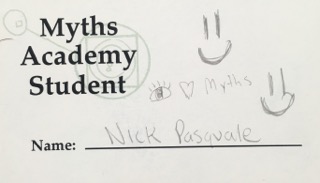 Myths
Academy
Student
Myths
Name: Nick Pasquale